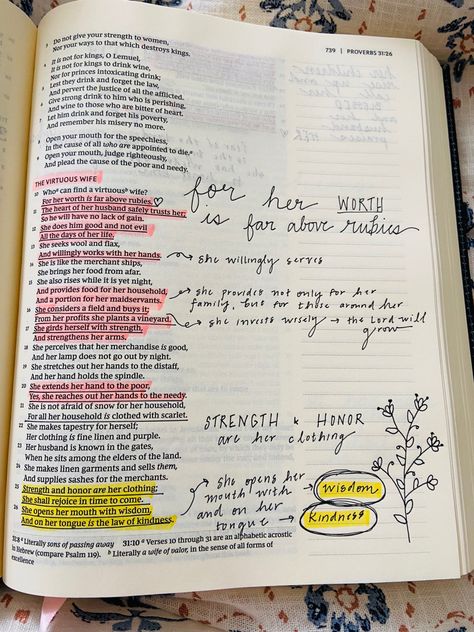 739 | PROVERBS 31:26
3 Do not give your strength to women,
Nor your ways to that which destroys kings.
4 It is not for kings, O Lemuel,
It is not for kings to drink wine,
Nor for princes intoxicating drink;
5 Lest they drink and forget the law,
And pervert the justice of all the afflicted.
6 Give strong drink to him who is perishing,
And wine to those who are bitter of heart.
7 Let him drink and forget his poverty,
And remember his misery no more.
8 Open your mouth for the speechless,
In the cause of all who are appointed to die.a
9 Open your mouth, judge righteously,
And plead the cause of the poor and needy.
THE VIRTUOUS WIFE
10 Whoa can find a virtuousb wife?
For her worth is far above rubies.
11 The heart of her husband safely trusts her;
So he will have no lack of gain.
12 She does him good and not evil
All the days of her life.
13 She seeks wool and flax,
And willingly works with her hands.
14 She is like the merchant ships,
She brings her food from afar.
15 She also rises while it is yet night,
And provides food for her household,
And a portion for her maidservants.
16 She considers a field and buys it;
From her profits she plants a vineyard.
17 She girds herself with strength,
And strengthens her arms.
18 She perceives that her merchandise is good,
And her lamp does not go out by night.
19 She stretches out her hands to the distaff,
And her hand holds the spindle.
20 She extends her hand to the poor,
Yes, she reaches out her hands to the needy.
21 She is not afraid of snow for her household,
For all her household is clothed with scarlet.
22 She makes tapestry for herself;
Her clothing is fine linen and purple.
23 Her husband is known in the gates,
When he sits among the elders of the land.
24 She makes linen garments and sells them,
And supplies sashes for the merchants.
25 Strength and honor are her clothing;
She shall rejoice in time to come.
26 She opens her mouth with wisdom,
And on her tongue is the law of kindness.
31:8 a Literally sons of passing away 31:10 a Verses 10 through 31 are an alphabetic acrostic
in Hebrew (compare Psalm 119). b Literally a wife of valor, in the sense of all forms of
excellence
for her WORTH
is far above rubies
she willingly serves
she provides not only for her
family, but for those around her
she invests wisely → the Lord will
grow
STRENGTH & HONOR
are her clothing
she opens her
mouth with → wisdom
and on her
tongue → kindness